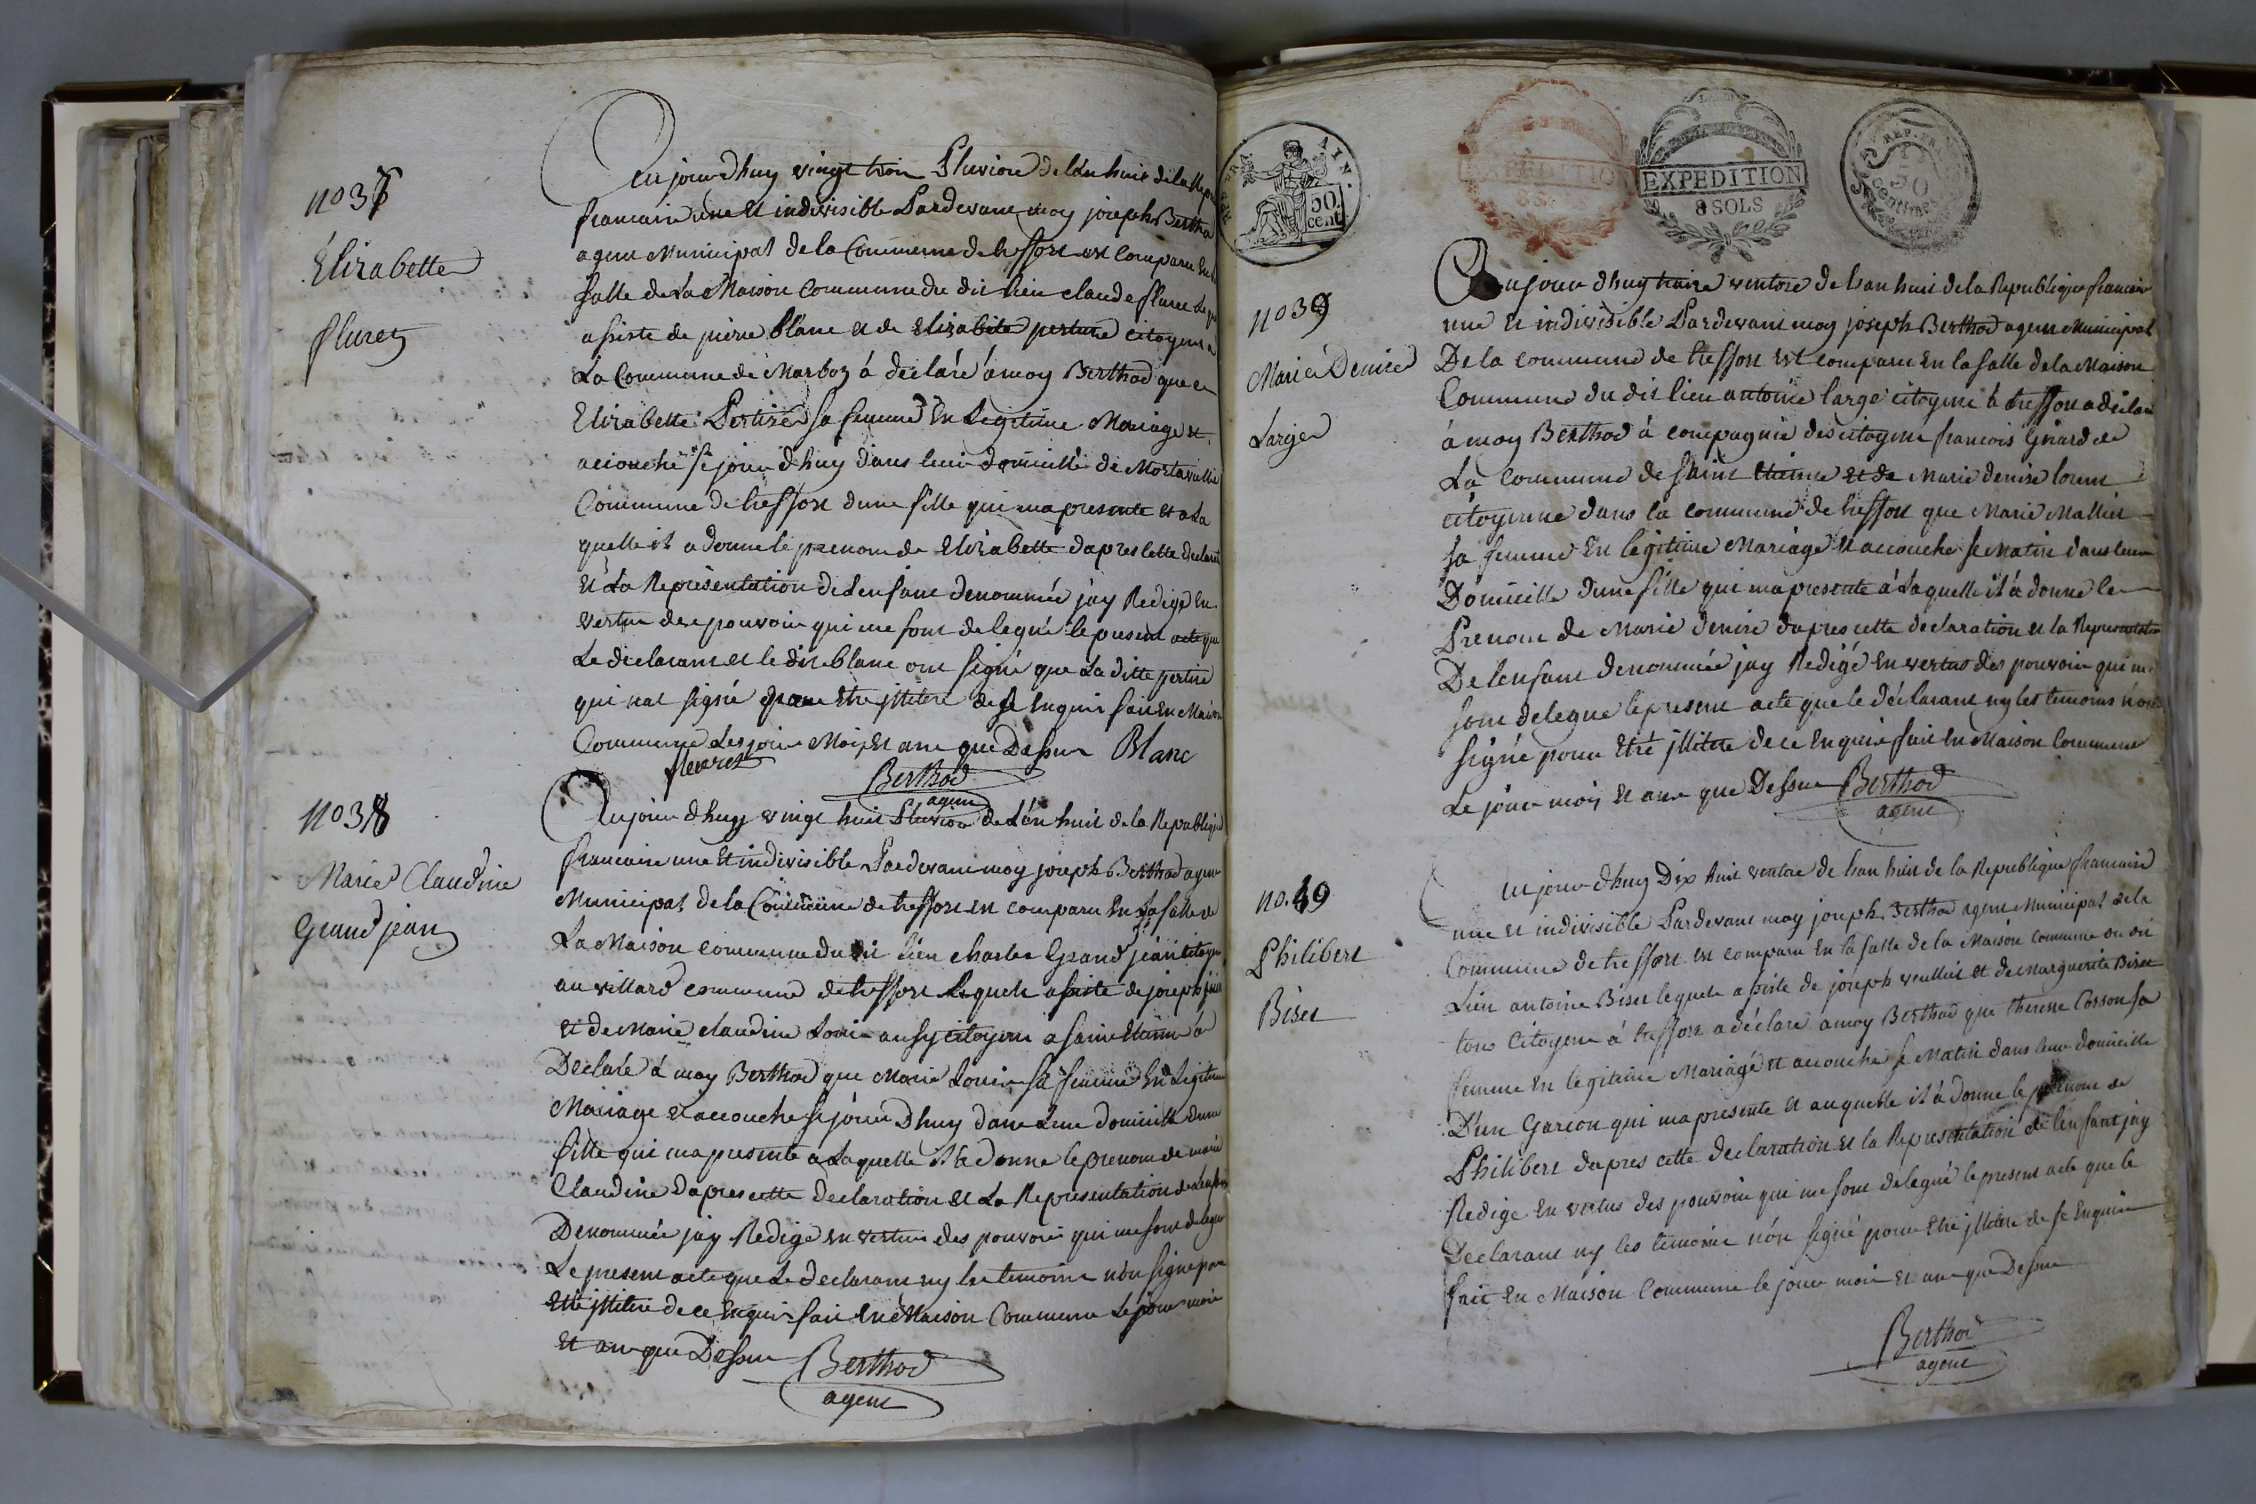 no 37
Elizabette
fluret
Aujourdhuy vingt trois Pluviose de lan huit de la Repu
francaise une et indivisible Pardevant moy joseph Bertho
agent Municipal de la Commune de treffort est comparu En
Salle de la Maison Commune du dit lieu claude flure
assisté de pierre blanc et de Elizabete pertuise citoyens
La Commune de Marboz á déclaré á moy Berthod que
Elizabette Pertuise sa femme En Legitime Mariage est
accouché se jourdhuy dans leur domicille de Mortaville
Commune de treffort dune fille qui ma presenté et a La
quelle il a donné le prenom de Elizabette dapres cette declarat
et La Representation de lenfant denommée jay Redigé En
vertus des pouvoir qui me sont delegué le present acte que
Le declarant et le dit blanc ont signé que La ditte pertuise
qui nat signé pour Etre jllitere de se Enquis fait En Maison
Commune Les jour Mois Et ans que Dessus Blanc
fleuret
Berthod
agent
no 38
Marie Claudine
Grand jean
Aujourdhuy vingt huit Pluviose de Lan huit de la Republique
francaise une Et indivisible Pardevant moy joseph Berthod agent
Municipal de la Commune de treffort est comparu En La salle de
La Maison commune du dit lieu charles Grand jean citoyen
au villard commune de treffort Lequele assisté de joseph
et de Marie claudine Louis aussy citoyens a saint Etienne á
Declaré á moy Berthod que Marie Louis sa femme En Legitime
Mariage est accouche se jour Dhuy dans Leur domicille dune
fille qui ma presenté a Laquelle il a donné le prenom de marie
Claudine Dapres cette declaration et La Representation de Lenfant
Denommée jay Redigé en vertus des pouvoir qui me sont delegué
Le present acte que Le declarant ny les temoins non signé pour
Etre jllitere de ce Enquis fait En Maison Commune Le jour mois
Et an que Dessus
Berthod
agent
REP. FRA. AIN.
50
cent
EXPEDITION
EXPEDITION
8 SOLS
REP. FRA.
50
Centimes
no 39
Marie Denise
Large
Aujourdhuy treize ventose de Lan huit de la Republique francaise
une et indivisible Pardevant moy joseph Berthod agent Municipal
De la commune de treffort est comparu En la salle de la Maison
Commune du dit lieu antoine large citoyen á treffort a déclaré
á moy Berthod á compagnié des citoyens francois Girard de
La Commune de saint Etienne et de Marie denise
citoyenne dans la commune de treffort que Marie Mallet
sa femme En legitime Mariage est accouche se Matin dans leur
Domicille dune fille qui ma presenté á Laquelle il á donné le
Prenom de Marie denise dapres cette declaration et la Representation
De Lenfant denommée jay Redigé En vertus des pouvoir qui me
sont delegué le present acte que le déclarant ny les temoins n'ont
signé pour Etre jllitere de ce Enquis fait En Maison Commune
Le jour mois et ans que Dessus
Berthod
agent
no. 40
Philibert
Biset
Aujourdhuy Dix huit ventose de Lan huit de la Republique francaise
une et indivisible Pardevant moy joseph Berthod agent Municipal de la
Commune de treffort est comparu En la salle de la Maison Commune du dit
Lieu antoine Biset lequele assisté de joseph veuillet et de Marguerite Biset
tous Citoyens á treffort a déclaré a moy Berthod que therese Cosson sa
femme En legitime Mariagé est accouché se Matin dans leur domicille
D'un Garcon qui ma presenté et auquelle il á donné le prenom de
Philibert dapres cette declaration et la Representation de lenfant jay
Redigé En vertus des pouvoir qui me sont delegué le present acte que le
Declarant ny les temoins nón signé pour Etre jllitere de se Enquis
fait En Maison Commune le jour mois et an que Dessus
Berthod
agent